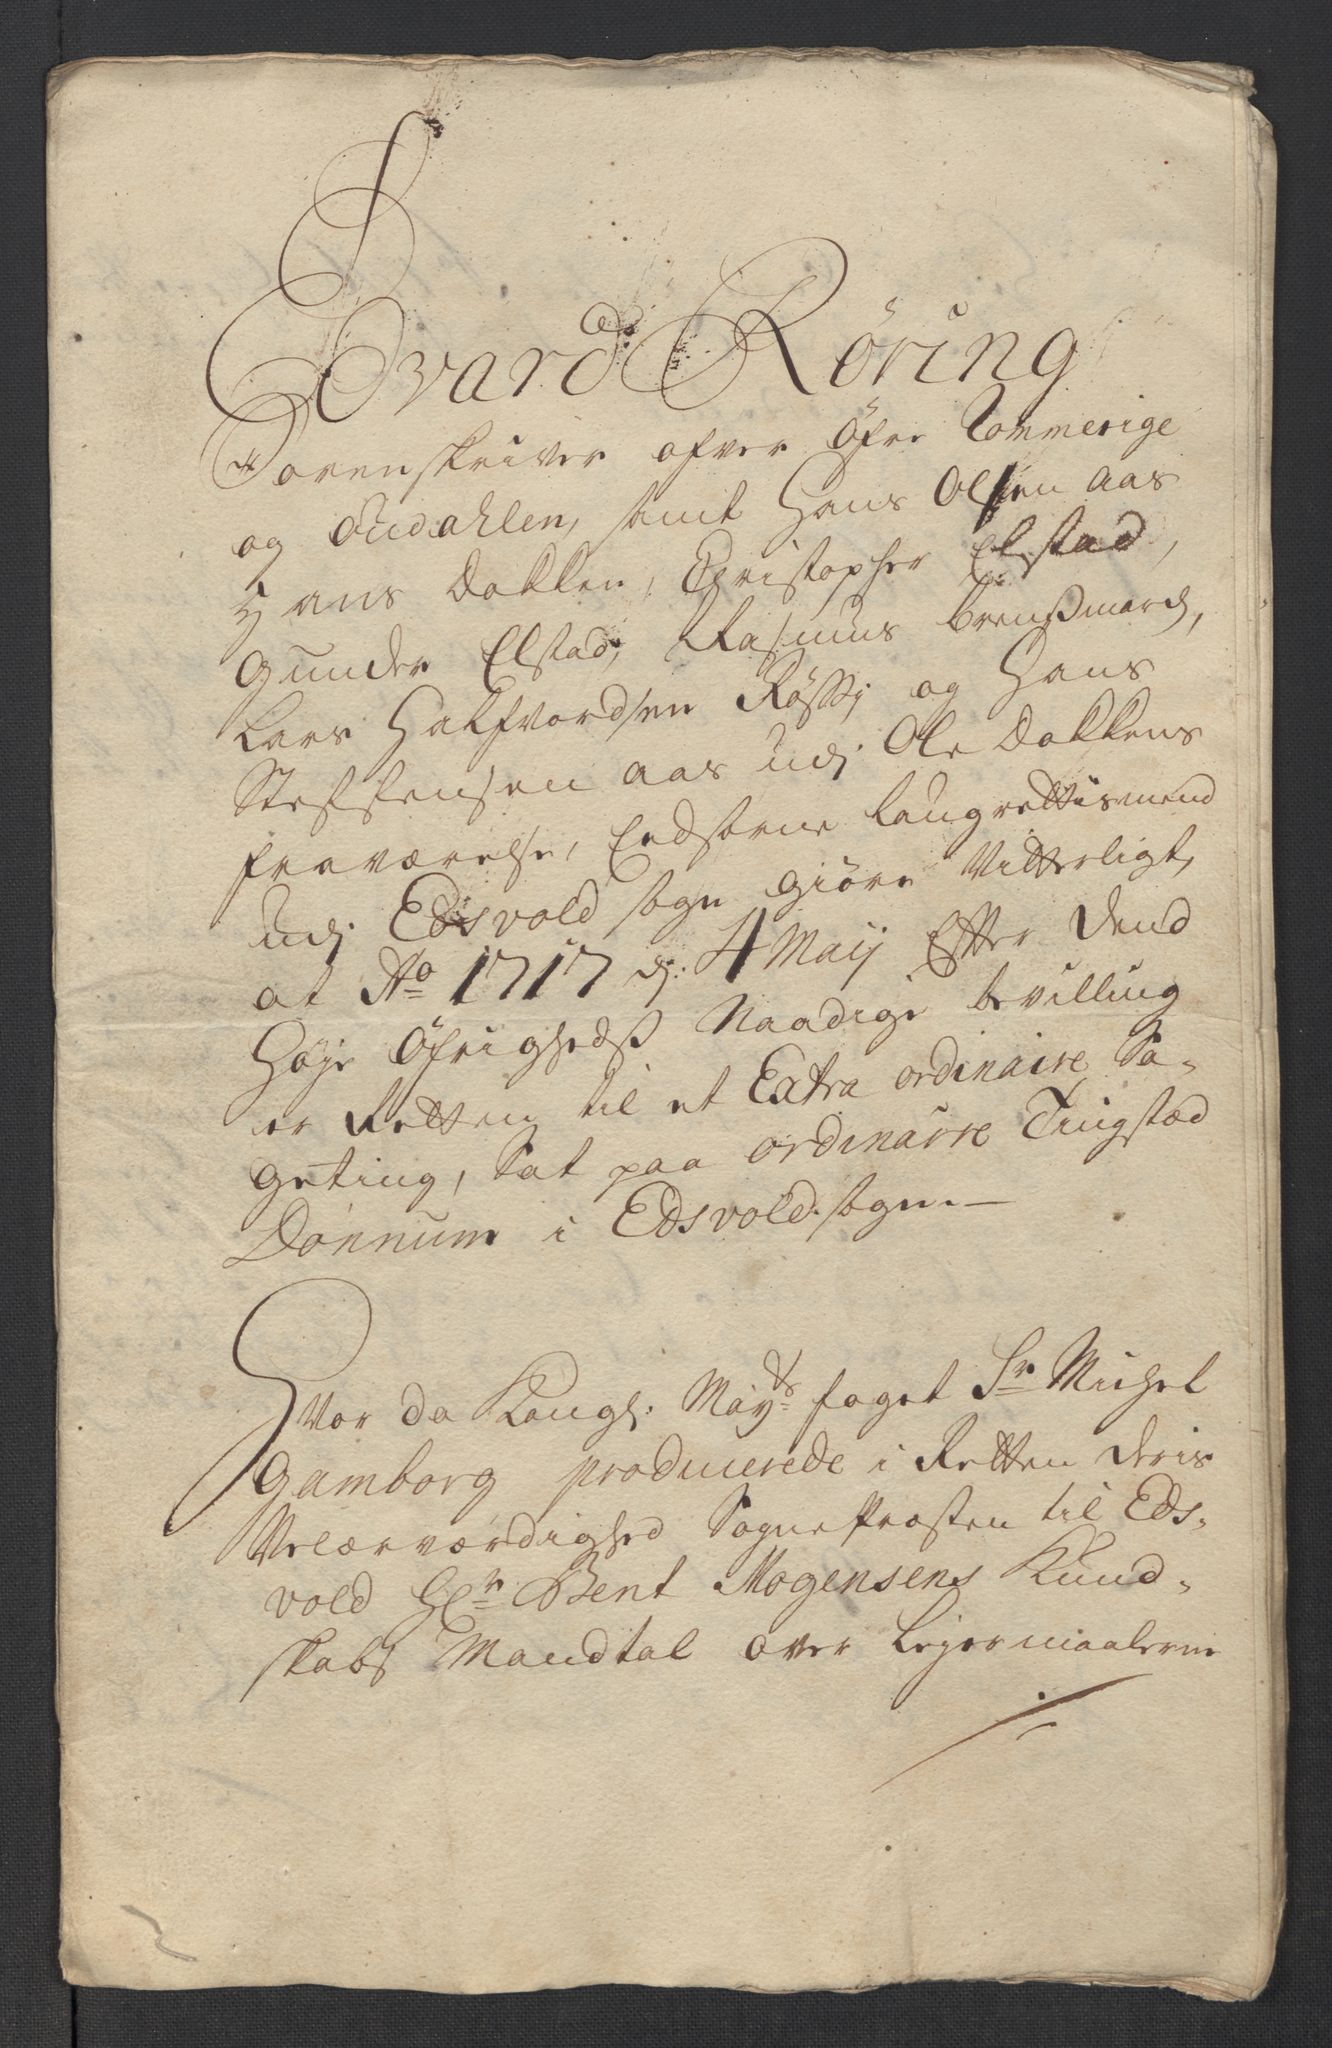 Evard Röring
Sorenskriver ofver Öfre Rommerige
og Oudahlen, samt Hans Olsen Aas
Hans Dokken, Christopher Elstad,
Gunder Elstad, Rasmus Brensmard,
Lars Halfvordsen Rösti og Hans
Steffensen Aas udj Ole Dokkens
fraværelse, Eedsorne laugrettismænd
udj Edsvold sogn giöre Vitterligt,
at Ao 1717 d: 4 Maij Efter Dend
Høje Öfrigheds Naadige bevilling
er Retten til et Extra ordinaire Sa-
geting, Sat paa ordinaire Tingstæd
Dønnum i Edsvold sogn. —
Hvor da Kongl: Mayts foget Sr Michel
Gamborg producerede i Retten deris
Velærværdighed Sognepræsten til Eds-
vold Hr Bent Mogensens Kund-
skabs Mandtal over Lejermaalerne